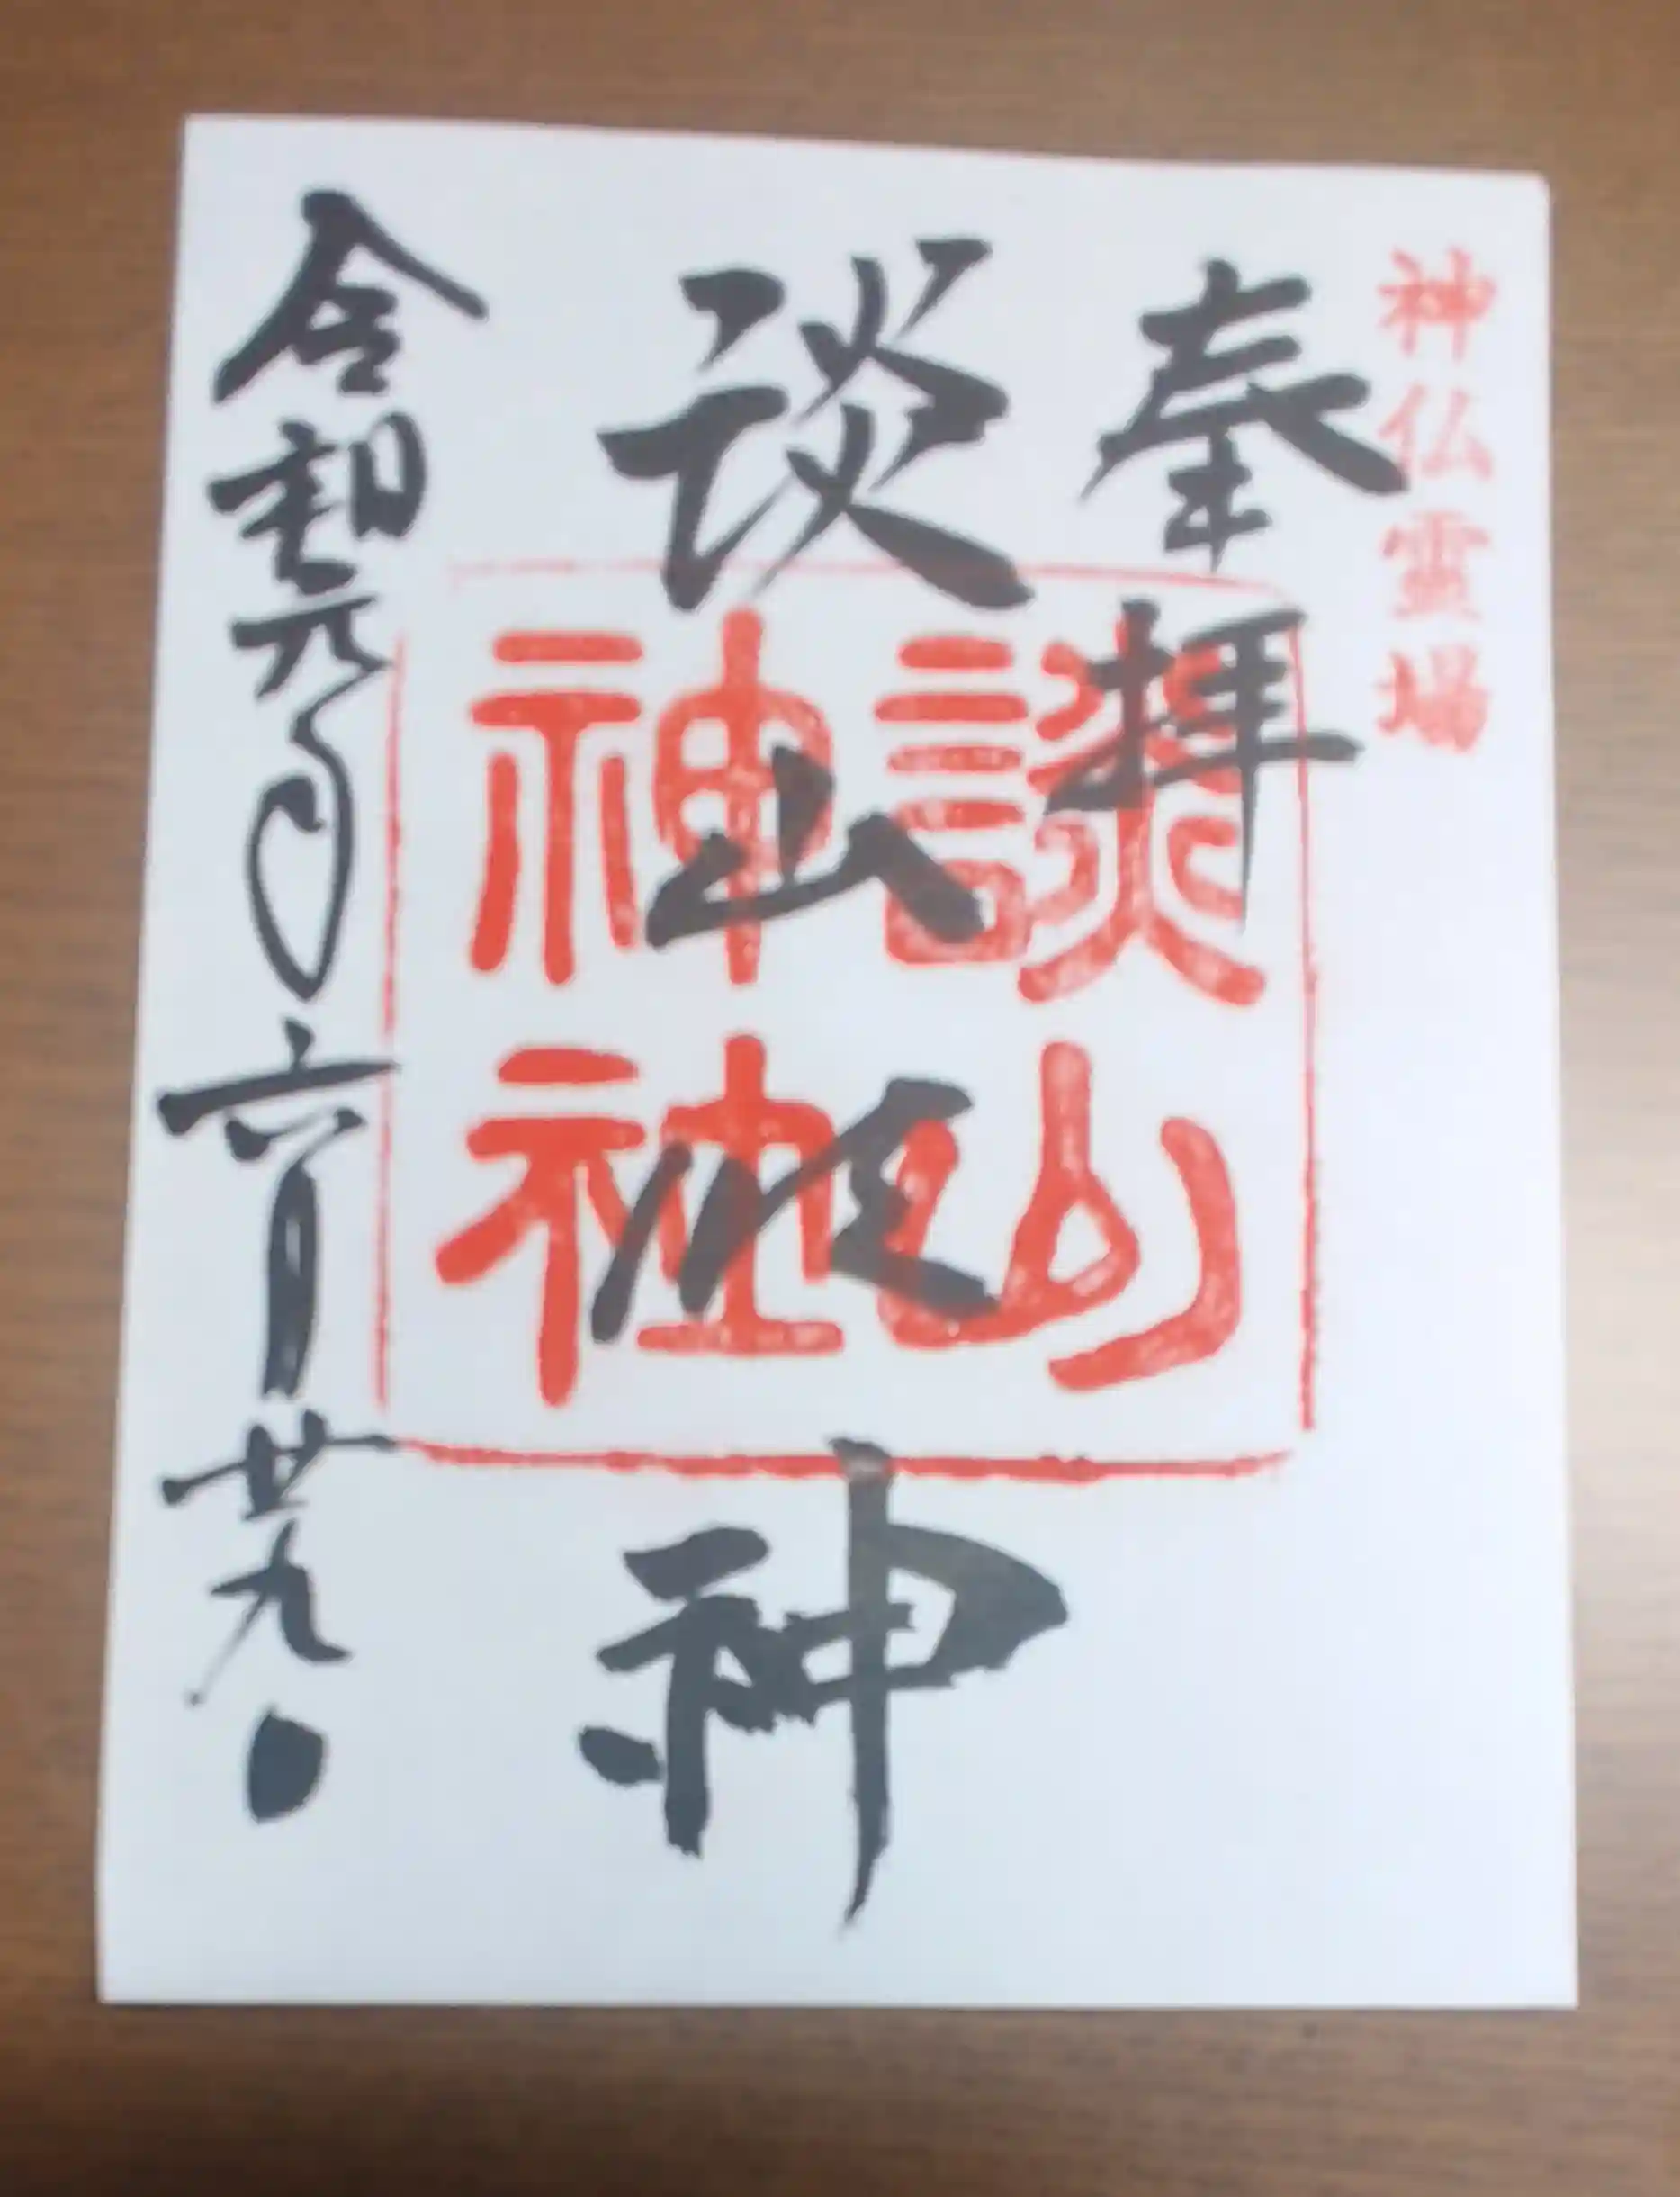 神仏霊場
奉拝
談山神
談山
神社
令和元年六月廿九日